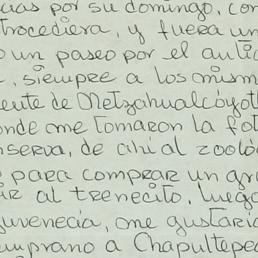 cias por su domingo, con
trocediera, y fuera un
o un paseo por el anti
, siempre a los mism
ente de Netzahualcóyotl
onde me tomaron la fot
nserva, de ahí al zooló
para comprar un gr
ir al trenecito, luego
juvenecia, me gustaría
emprano a Chapultepec